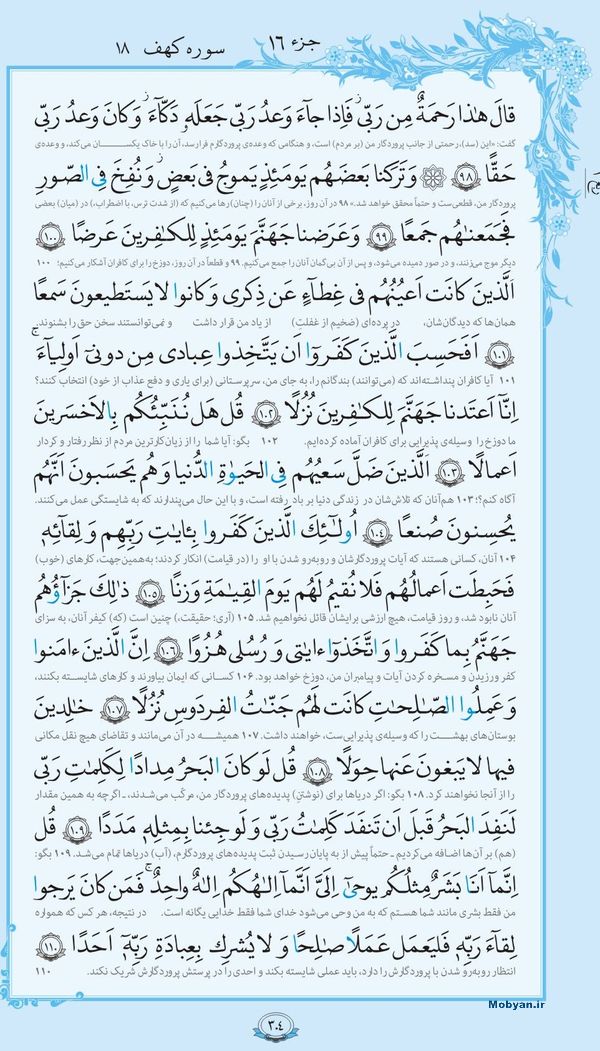 جزء ۱۶
سوره کهف ۱۸
قالَ هٰذا رَحمَةٌ مِن رَبّی فَاِذا جآءَ وَعدُ رَبّی جَعَلَه‌و دَکّآءَ وَ کانَ وَعدُ رَبّی
گفت: «این (سد)، رحمتی از جانب پروردگار من (بر مردم) است، و هنگامی که وعده‌ی پروردگارم فرا رسد، آن را با خاک یکسان می‌کند، و وعده‌ی
حَقًّا ﴿۹۸﴾ وَ تَرَکنا بَعضَهُم یَومَئِذٍ یَموجُ فی بَعضٍ وَ نُفِخَ فِی الصّورِ
پروردگار من، قطعی‌ست و حتماً محقق خواهد شد.» ۹۸ در آن روز، برخی از آنان را (چنان) رها می‌کنیم که (از شدت ترس، با اضطراب)، در (میان) بعضی
فَجَمَعنٰهُم جَمعًا ﴿۹۹﴾ وَ عَرَضنا جَهَنَّمَ یَومَئِذٍ لِلکٰفِرینَ عَرضًا ﴿۱۰۰﴾
دیگر موج می‌زنند، و در صور دمیده می‌شود، و پس از آن بی‌گمان آنان را جمع می‌کنیم. ۹۹ و قطعاً در آن روز، دوزخ را برای کافران آشکار می‌کنیم؛ ۱۰۰
اَلَّذینَ کانَت اَعیُنُهُم فی غِطآءٍ عَن ذِکری وَ کانوا لا یَستَطیعونَ سَمعًا
همان‌ها که دیدگان‌شان، در پرده‌ای (ضخیم از غفلتِ) از یاد من قرار داشت و نمی‌توانستند سخن حق را بشنوند.
﴿۱۰۱﴾ اَفَحَسِبَ الَّذینَ کَفَروٓا اَن یَتَّخِذوا عِبادی مِن دونیٓ اَولِیآءَ
۱۰۱ آیا کافران پنداشته‌اند که (می‌توانند) بندگانم را، به جای من، سرپرستانی (برای یاری و دفع عذاب از خود) انتخاب کنند؟
اِنّآ اَعتَدنا جَهَنَّمَ لِلکٰفِرینَ نُزُلًا ﴿۱۰۲﴾ قُل هَل نُنَبِّئُکُم بِالاَخسَرینَ
ما دوزخ را وسیله‌ی پذیرایی برای کافران آماده کرده‌ایم. ۱۰۲ بگو: آیا شما را از زیان‌کارترین مردم از نظر رفتار و کردار
اَعمالًا ﴿۱۰۳﴾ اَلَّذینَ ضَلَّ سَعیُهُم فِی الحَیوٰةِ الدُّنیا وَ هُم یَحسَبونَ اَنَّهُم
آگاه کنم؟! ۱۰۳ هم‌آنان که تلاش‌شان در زندگی دنیا بر باد رفته است، و با این حال می‌پندارند که به شایستگی عمل می‌کنند.
یُحسِنونَ صُنعًا ﴿۱۰۴﴾ اُولٰٓئِکَ الَّذینَ کَفَروا بِـٔایٰتِ رَبِّهِم وَ لِقآئِهٖ
۱۰۴ آنان، کسانی هستند که آیات پروردگارشان و روبه‌رو شدن با او را (در قیامت) انکار کردند؛ به‌همین‌جهت، کارهای (خوب)
فَحَبِطَت اَعمالُهُم فَلا نُقیمُ لَهُم یَومَ القِیٰمَةِ وَزنًا ﴿۱۰۵﴾ ذٰلِکَ جَزآؤُهُم
آنان نابود شد، و روز قیامت، هیچ ارزشی برایشان قائل نخواهیم شد. ۱۰۵ (آری؛ حقیقت،) چنین است (که) کیفر آنان، به سزای
جَهَنَّمُ بِما کَفَروا وَ اتَّخَذوٓا ءایٰتی وَ رُسُلی هُزُوًا ﴿۱۰۶﴾ اِنَّ الَّذینَ ءامَنوا
کفر ورزیدن و مسخره کردن آیات و پیامبران من، دوزخ خواهد بود. ۱۰۶ کسانی که ایمان بیاورند و کارهای شایسته بکنند،
وَ عَمِلُوا الصّٰلِحٰتِ کانَت لَهُم جَنّٰتُ الفِردَوسِ نُزُلًا ﴿۱۰۷﴾ خٰلِدینَ
بوستان‌های بهشت را که وسیله‌ی پذیرایی‌ست، خواهند داشت. ۱۰۷ همیشه در آن می‌مانند و تقاضای هیچ نقل مکانی
فیها لا یَبغونَ عَنها حِوَلًا ﴿۱۰۸﴾ قُل لَو کانَ البَحرُ مِدادًا لِکَلِمٰتِ رَبّی
را از آنجا نخواهند کرد. ۱۰۸ بگو: اگر دریاها برای (نوشتنِ) پدیده‌های پروردگار من، مرکّب می‌شدند، ـ اگرچه به همین مقدار
لَنَفِدَ البَحرُ قَبلَ اَن تَنفَدَ کَلِمٰتُ رَبّی وَ لَو جِئنا بِمِثلِهٖ مَدَدًا ﴿۱۰۹﴾ قُل
(هم) بر آن‌ها اضافه می‌کردیم ـ حتماً پیش از به پایان رسیدن ثبت پدیده‌های پروردگارم، (آب) دریاها تمام می‌شد. ۱۰۹ بگو:
اِنَّمآ اَنَا بَشَرٌ مِثلُکُم یوحیٰٓ اِلَیَّ اَنَّمآ اِلٰهُکُم اِلٰهٌ واحِدٌ فَمَن کانَ یَرجوا
من فقط بشری مانند شما هستم که به من وحی می‌شود خدای شما فقط خدایی یگانه است. در نتیجه، هر کس که همواره
لِقآءَ رَبِّهٖ فَلیَعمَل عَمَلًا صٰلِحًا وَ لا یُشرِک بِعِبادَةِ رَبِّهٖٓ اَحَدًا ﴿۱۱۰﴾
انتظار روبه‌رو شدن با پروردگارش را دارد، باید عملی شایسته بکند و احدی را در پرستش پروردگارش شریک نکند. ۱۱۰
Mobyan.ir
۳۰۴